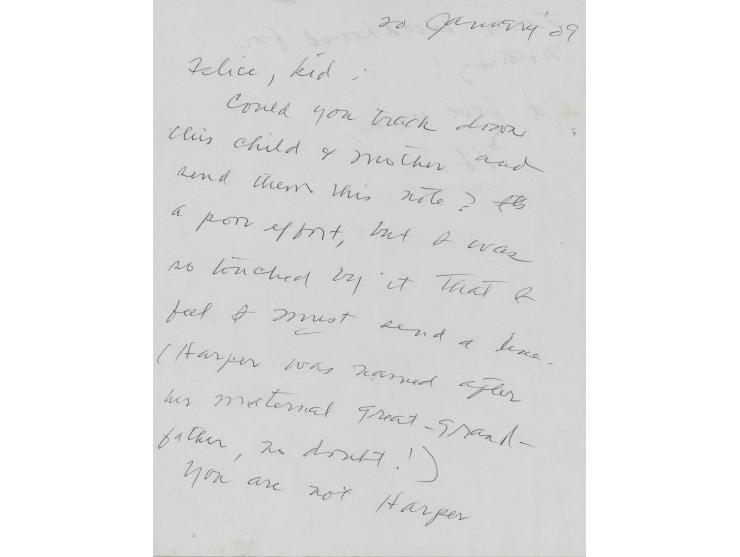 20 January '09
Felice, kid:
Could you track down
this child & mother and
send them this note? It's
a poor effort, but I was
so touched by it that I
feel I must send a line.
(Harper was named after
his maternal great-grand-
father, no doubt!)
You are not Harper